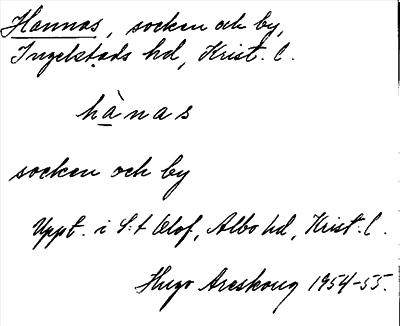 Hannas, socken och by,
Ingelstads hd, Krist. l.
hànas
socken och by
Uppt. i S:t Olof, Albo hd, Krist. l.
Hugo Areskoug 1954-55.